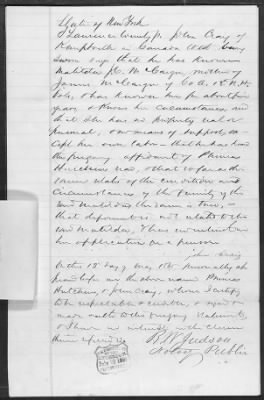 State of New York
St Lawrence County ss John Craig of
in Canada West being
sworn says that he has known
Matilda McCargar mother of
James McCargar of Co A.
for about
years & knows her circumstances and
that she has no property real or
personal, or means of support, ex-
cept her own labor – that he has heard
the foregoing affidavit of Thomas
Hutchins read, & that so far as the
same states of the condition and
circumstances of the family of the
said Matilda the same is true,
that deponent is not related to the
said Matilda, & has no interest in
her application for a pension
John Craig
On this 15 day of May 186 personally ap-
peared before me the above named Thomas
Hutchins & John Craig, whom I certify
to be respectable & credible, & signed and
made oath to the foregoing statements,
& I have no interest in the claim
therein referred to
Judson
Notary Public